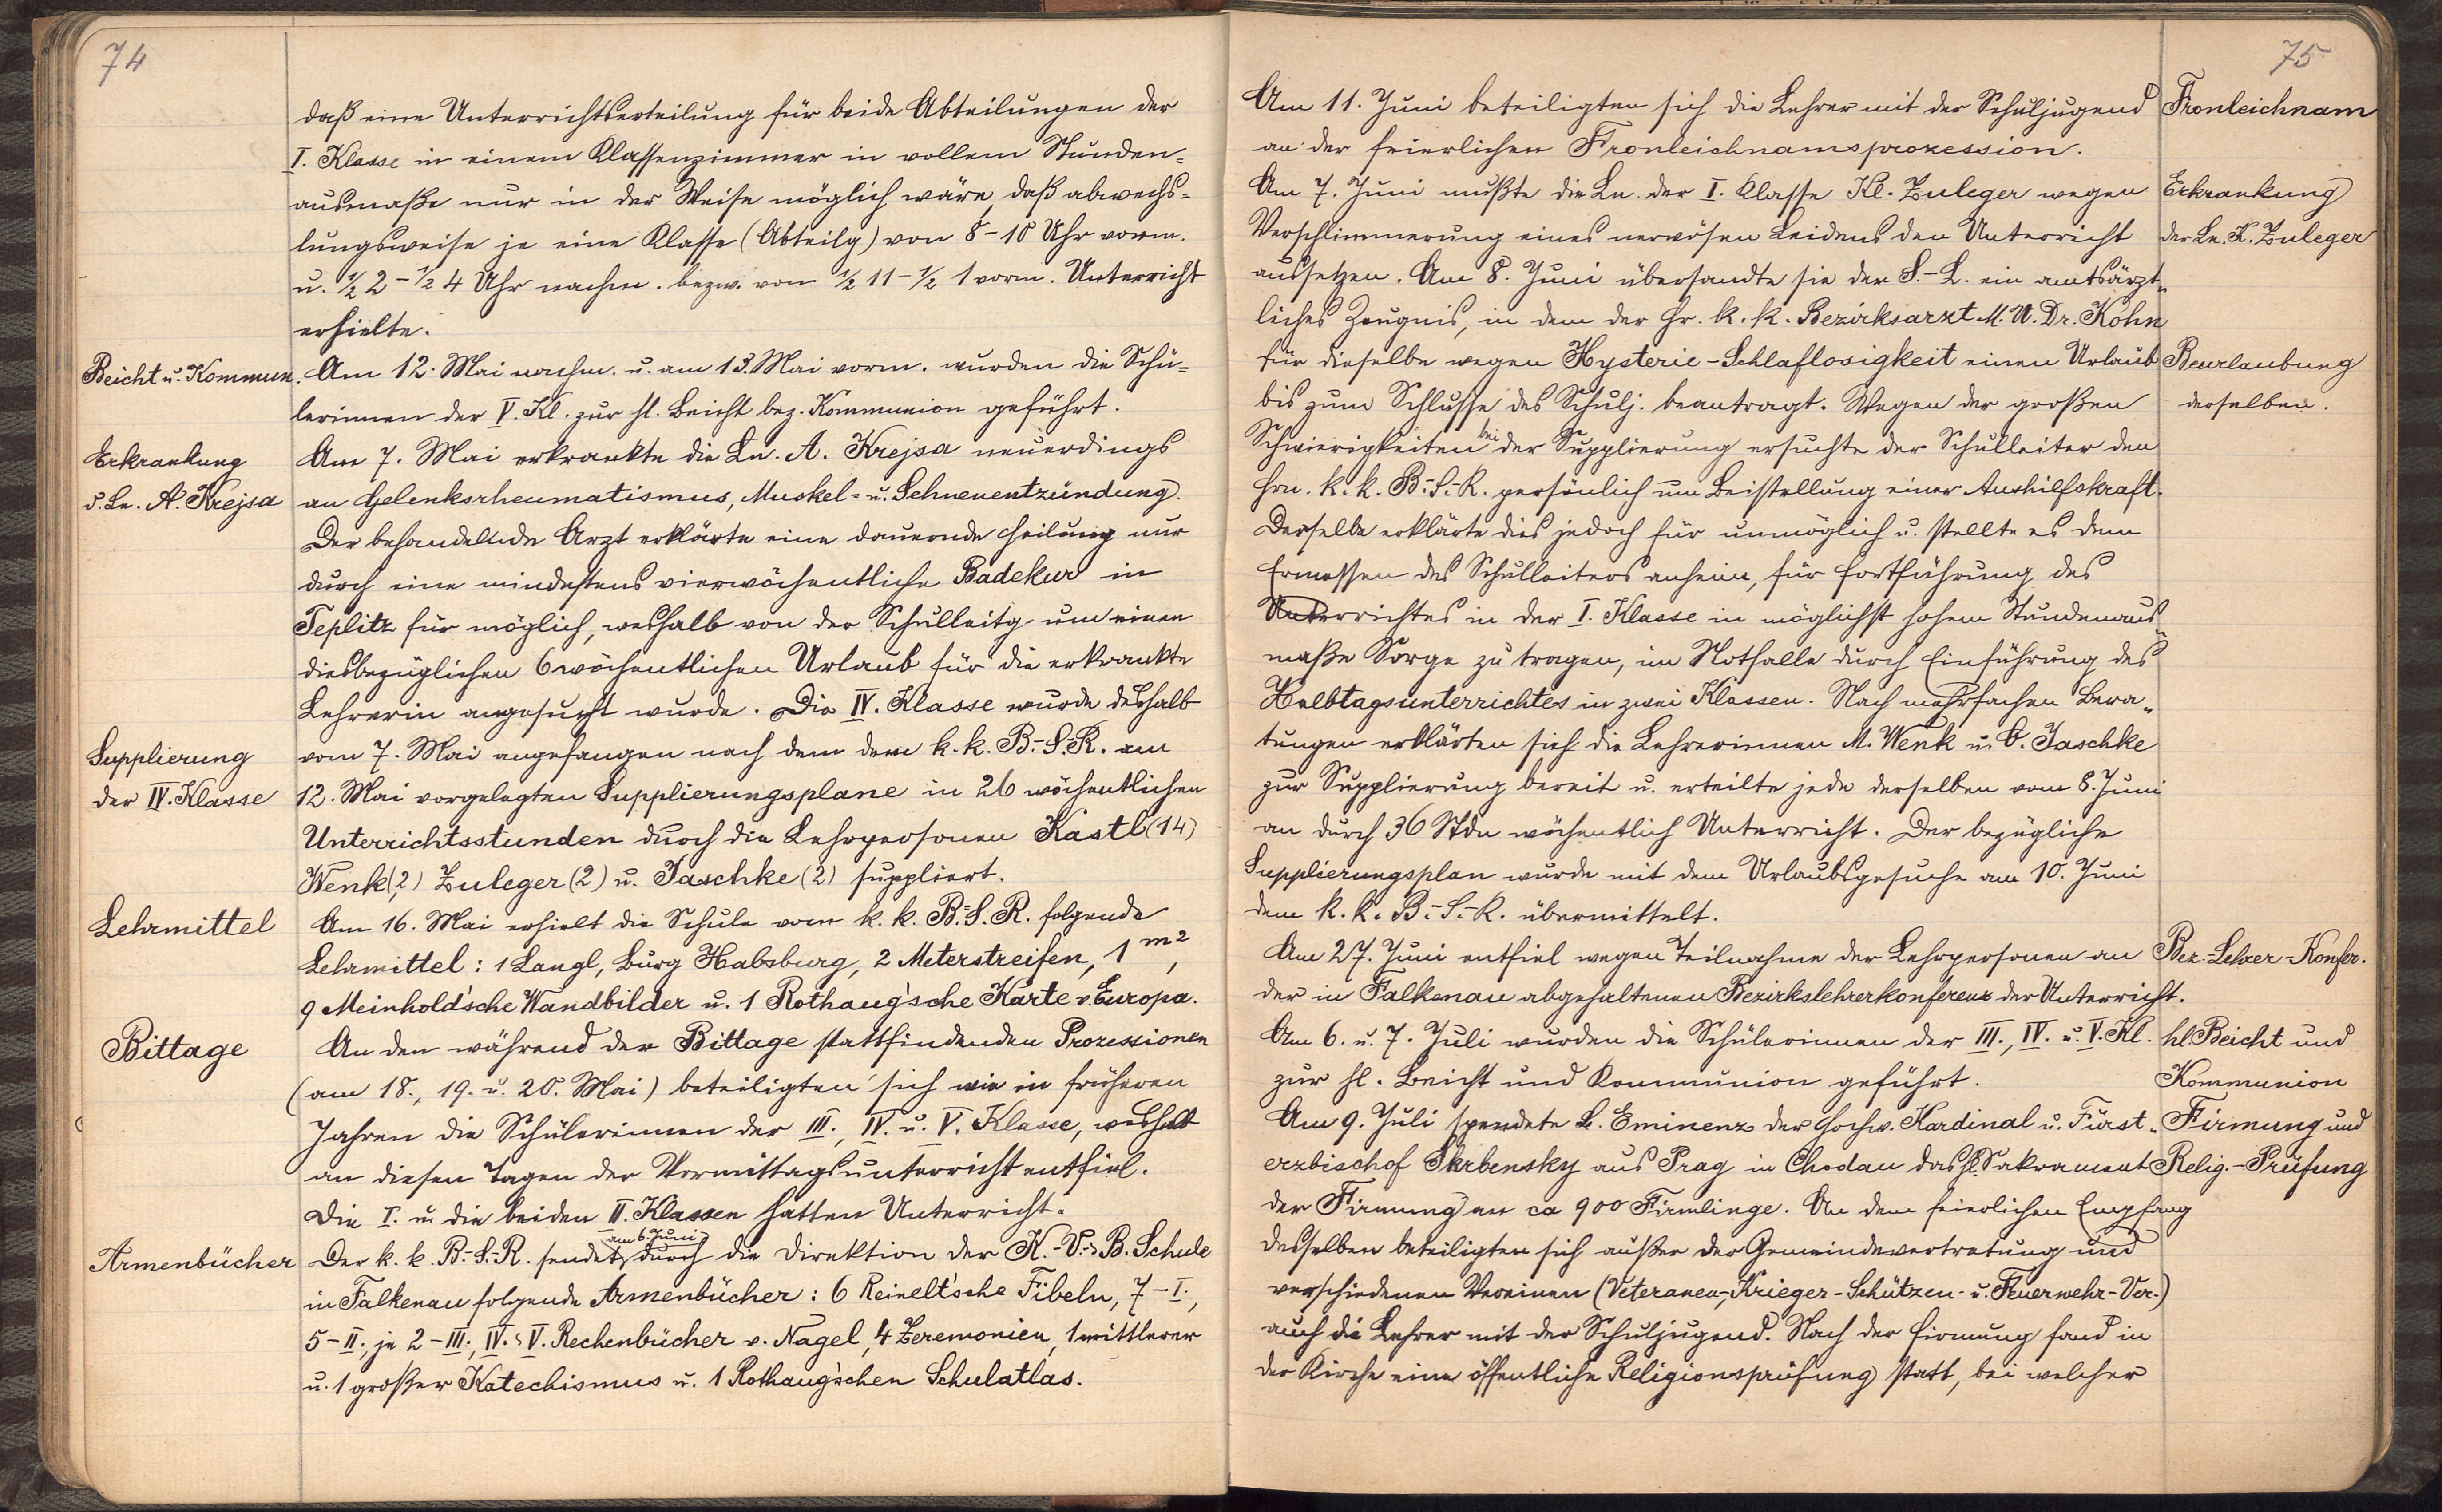 74
daß eine Unterrichtserteilung für beide Abteilungen der
I. Klasse in einem Klassenzimmer in vollem Stunden-
ausmaße nur in der Weise möglich wäre, daß abwechs-
lungsweise je eine Klasse (Abteilg) von 8-10 Uhr vorm.
u. ½ 2 - ½ 4 Uhr nachm. bezw. von ½ 11 - ½ 1 vorm. Unterricht
erhielte.
Beicht u. Kommun. Am 12. Mai nachm. u. am 13. Mai vorm. wurden die Schü-
lerinnen der V. Kl. zur hl. Beicht bez. Kommunion geführt.
Erkrankung Am 7. Mai erkrankte die Ln. A. Krejsa neuerdings
d. Ln. A. Krejsa an Gelenksrheumatismus, Muskel- u. Sehnenentzündung.
Der behandelnde Arzt erklärte eine dauernde Heilung nur
durch eine mindestens vierwöchentliche Badekur in
Teplitz für möglich, weshalb von der Schulleitg um einen
diesbezüglichen 6 wöchentlichen Urlaub für die erkrankte
Lehrerin angesucht wurde. Die IV. Klasse wurde deshalb
Supplierung vom 7. Mai angefangen nach dem dem k. k. B.-S.-R. am
der IV. Klasse 12. Mai vorgelegten Supplierungsplane in 26 wöchentlichen
Unterrichtsstunden durch die Lehrpersonen Kastl (14)
Wenk (2) Zuleger (2) u. Jaschke (2) suppliert.
Lehrmittel Am 16. Mai erhielt die Schule vom k. k. B.-S. R. folgende
Lehrmittel: 1 Langl, Burg Habsburg, 2 Meterstreifen, 1 m²,
9 Meinhold'sche Wandbilder u. 1 Rothaug'sche Karte v. Europa.
Bittage An den während der Bittage stattfindenden Prozessionen
(am 18., 19. u. 20. Mai) beteiligten sich wie in früheren
Jahren die Schülerinnen der III., IV. u. V. Klasse, weshalb
an diesen Tagen der Vormittagsunterricht entfiel.
Die I. u. die beiden II. Klassen hatten Unterricht.
am 6. Juni
Armenbücher Der k. k. B.-S.-R. sendet durch die Direktion der K.-V.-B. Schule
in Falkenau folgende Armenbücher: 6 Reinelt'sche Fibeln, 7-I.,
5-II., je 2-III., IV. V. Rechenbücher v. Nagel, 4 Zeremonien, 1 mittlerer
u. 1 großer Katechismus u. 1 Rothaug'schen Schulatlas.
75
Am 11. Juni beteiligten sich die Lehrer mit der Schuljugend Fronleichnam
an der feierlichen Fronleichnamsprozession.
Am 7. Juni mußte die Ln. der I. Klasse Kl. Zuleger wegen Erkrankung
Verschlimmerung eines nervösen Leidens den Unterricht der Ln. K. Zuleger
aussetzen. Am 8. Juni übersandte sie der S.-L. ein amtsärzt-
liches Zeugnis, in dem der Hr. k. k. Bezirksarzt M. U. Dr. Kohn
für dieselbe wegen Hysterie-Schlaflosigkeit einen Urlaub Beurlaubung
bis zum Schlusse des Schulj. beantragt. Wegen der großen derselben.
Schwierigkeiten bei der Supplierung ersuchte der Schulleiter den
Hrn. k. k. B.-S.-R. persönlich um Beistellung einer Aushilfskraft.
Derselbe erklärte dies jedoch für unmöglich u. stellte es dem
Ermessen des Schulleiters anheim, für Fortführung des
Unterrichtes in der I. Klasse in möglichst hohem Stundenaus-
maße Sorge zu tragen, im Notfalle durch Einführung des
Halbtagsunterrichtes in zwei Klassen. Nach mehrfachen Bera-
tungen erklärten sich die Lehrerinnen M. Wenk u. O. Jaschke
zur Supplierung bereit u. erteilte jede derselben vom 8. Juni
an durch 36 Stdn wöchentlich Unterricht. Der bezügliche
Supplierungsplan wurde mit dem Urlaubsgesuche am 10. Juni
dem k. k. B.-S.-R. übermittelt.
Am 27. Juni entfiel wegen Teilnahme der Lehrpersonen an Bez.-Lehrer-Konfer.
der in Falkenau abgehaltenen Bezirkslehrerkonferenz der Unterricht.
Am 6. u. 7. Juli wurden die Schülerinnen der III., IV. u. V. Kl. hl. Beicht und
zur hl. Beicht und Kommunion geführt. Kommunion
Am 9. Juli spendete S. Eminenz der hochw. Kardinal u. Fürst- Firmung und
erzbischof Skrbensky aus Prag in Chodau das hl. Sakrament Relig.-Prüfung
der Firmung an ca 900 Firmlinge. An dem feierlichen Empfang
desselben beteiligten sich außer der Gemeindevertretung und
verschiedenen Vereinen (Veteranen-, Krieger-Schützen- u. Feuerwehr-Ver.)
auch die Lehrer mit der Schuljugend. Nach der Firmung fand in
der Kirche eine öffentliche Religionsprüfung statt, bei welcher